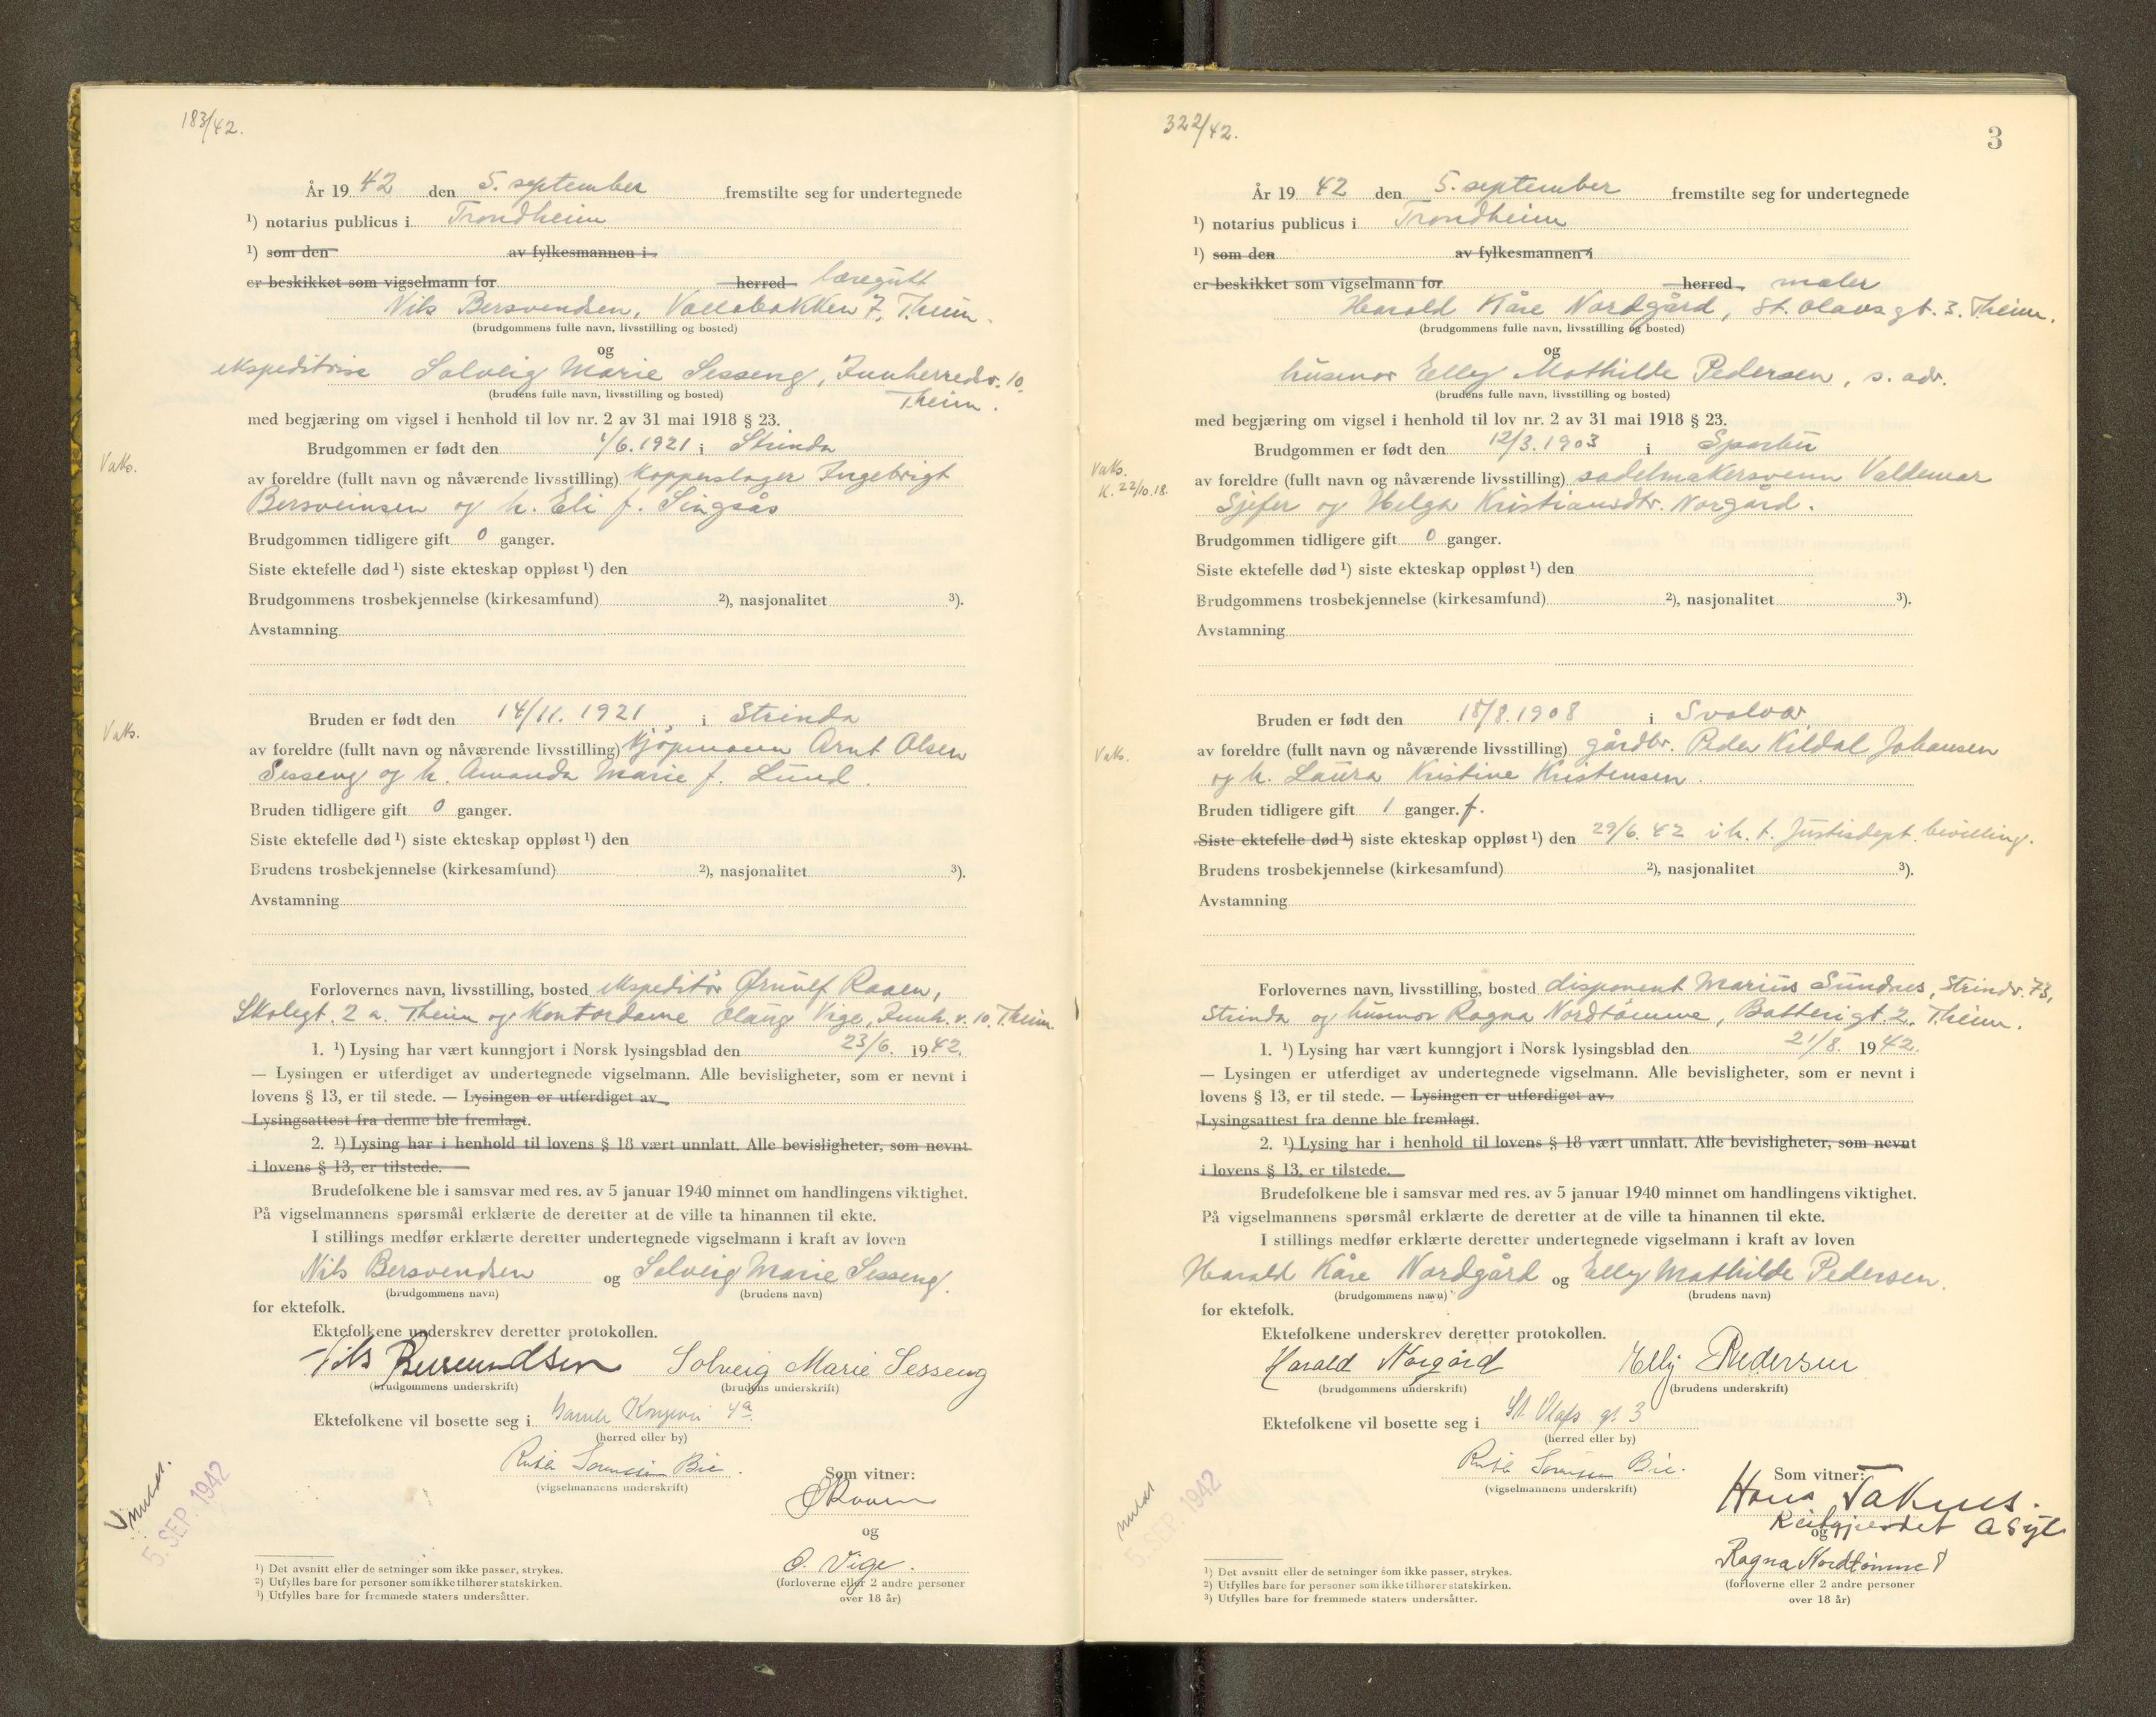 183/42.
År 19 42 den 5. september fremstilte seg for undertegnede
¹) notarius publicus i Trondheim
¹) som den av fylkesmannen i
er beskikket som vigselmann for herred læregutt
Nils Bersvendsen, Vollabakken 7, T.heim.
(brudgommens fulle navn, livsstilling og bosted)
og
ekspeditrise Solveig Marie Sesseng, Innherredsv. 10
T.heim.
(brudens fulle navn, livsstilling og bosted)
med begjæring om vigsel i henhold til lov nr. 2 av 31 mai 1918 § 23.
Brudgommen er født den 1/6.1921 i Strinda
Vaks.
av foreldre (fullt navn og nåværende livsstilling) kopperslager Ingebrigt
Bersveinsen og h. Eli f. Singsås
Brudgommen tidligere gift 0 ganger.
Siste ektefelle død ¹) siste ekteskap oppløst ¹) den
Brudgommens trosbekjennelse (kirkesamfund) ²), nasjonalitet ³).
Avstamning
Bruden er født den 14/11. 1921, i Strinda
Vaks.
av foreldre (fullt navn og nåværende livsstilling) kjøpmann Arnt Olsen
Sesseng og h. Amanda Marie f. Lund.
Bruden tidligere gift 0 ganger.
Siste ektefelle død ¹) siste ekteskap oppløst ¹) den
Brudens trosbekjennelse (kirkesamfund) ²), nasjonalitet ³).
Avstamning
Forlovernes navn, livsstilling, bosted ekspeditør Ørnulf Raaen,
Skolegt. 2 a. T.heim og kontordame Olaug Vige, Innh.v. 10. T.heim
1. ¹) Lysing har vært kunngjort i Norsk lysingsblad den 23/6. 1942.
— Lysingen er utferdiget av undertegnede vigselmann. Alle bevisligheter, som er nevnt i
lovens § 13, er til stede. — Lysingen er utferdiget av
Lysingsattest fra denne ble fremlagt.
2. ¹) Lysing har i henhold til lovens § 18 vært unnlatt. Alle bevisligheter, som nevnt
i lovens § 13, er tilstede.
Brudefolkene ble i samsvar med res. av 5 januar 1940 minnet om handlingens viktighet.
På vigselmannens spørsmål erklærte de deretter at de ville ta hinannen til ekte.
I stillings medfør erklærte deretter undertegnede vigselmann i kraft av loven
Nils Bersvendsen og Solveig Marie Sesseng.
(brudgommens navn) (brudens navn)
for ektefolk.
Ektefolkene underskrev deretter protokollen.
Nils Bersvendsen Solveig Marie Sesseng
(brudgommens underskrift) (brudens underskrift)
Ektefolkene vil bosette seg i Gamle Kongevei 4a
(herred eller by)
Ruth Sorensen Bie.
(vigselmannens underskrift)
Som vitner:
ØRaaen
og
O. Vige.
(forloverne eller 2 andre personer
over 18 år)
5. SEP. 1942
¹) Det avsnitt eller de setninger som ikke passer, strykes.
²) Utfylles bare for personer som ikke tilhører statskirken.
³) Utfylles bare for fremmede staters undersåtter.
322/42.
3
År 19 42 den 5. september fremstilte seg for undertegnede
¹) notarius publicus i Trondheim
¹) som den av fylkesmannen i
er beskikket som vigselmann for herred maler
Harald Kåre Nordgård, St. Olavs gt. 3. T.heim.
(brudgommens fulle navn, livsstilling og bosted)
og
husmor Elly Mathilde Pedersen, s. adr.
(brudens fulle navn, livsstilling og bosted)
med begjæring om vigsel i henhold til lov nr. 2 av 31 mai 1918 § 23.
Brudgommen er født den 12/3.1903 i Sparbu
Vaks.
K. 22/10.18.
av foreldre (fullt navn og nåværende livsstilling) sadelmakersvenn Valdemar
Sjefer og Helga Kristiansdtr. Norgård.
Brudgommen tidligere gift 0 ganger.
Siste ektefelle død ¹) siste ekteskap oppløst ¹) den
Brudgommens trosbekjennelse (kirkesamfund) ²), nasjonalitet ³).
Avstamning
Bruden er født den 18/8.1908 i Svolvær
Vaks.
av foreldre (fullt navn og nåværende livsstilling) gårdbr. Peder Kildal Johansen
og h. Laura Kristine Kristensen.
Bruden tidligere gift 1 ganger. f.
Siste ektefelle død ¹) siste ekteskap oppløst ¹) den 29/6. 42 i h. t. Justisdept. bevilling.
Brudens trosbekjennelse (kirkesamfund) ²), nasjonalitet ³).
Avstamning
Forlovernes navn, livsstilling, bosted disponent Marius Sundnes, Strindv. 73,
Strinda og husmor Ragna Nordtømme, Batterigt. 2. T.heim.
1. ¹) Lysing har vært kunngjort i Norsk lysingsblad den 21/8. 1942.
— Lysingen er utferdiget av undertegnede vigselmann. Alle bevisligheter, som er nevnt i
lovens § 13, er til stede. — Lysingen er utferdiget av
Lysingsattest fra denne ble fremlagt.
2. ¹) Lysing har i henhold til lovens § 18 vært unnlatt. Alle bevisligheter, som nevnt
i lovens § 13, er tilstede.
Brudefolkene ble i samsvar med res. av 5 januar 1940 minnet om handlingens viktighet.
På vigselmannens spørsmål erklærte de deretter at de ville ta hinannen til ekte.
I stillings medfør erklærte deretter undertegnede vigselmann i kraft av loven
Harald Kåre Nordgård og Elly Mathilde Pedersen.
(brudgommens navn) (brudens navn)
for ektefolk.
Ektefolkene underskrev deretter protokollen.
Harald Norgård Elly Pedersen
(brudgommens underskrift) (brudens underskrift)
Ektefolkene vil bosette seg i St. Olafs gt 3
(herred eller by)
Ruth Sorensen Bie.
(vigselmannens underskrift)
Som vitner:
Hans
og
Ragna Nordtømme
(forloverne eller 2 andre personer
over 18 år)
5. SEP. 1942
¹) Det avsnitt eller de setninger som ikke passer, strykes.
²) Utfylles bare for personer som ikke tilhører statskirken.
³) Utfylles bare for fremmede staters undersåtter.